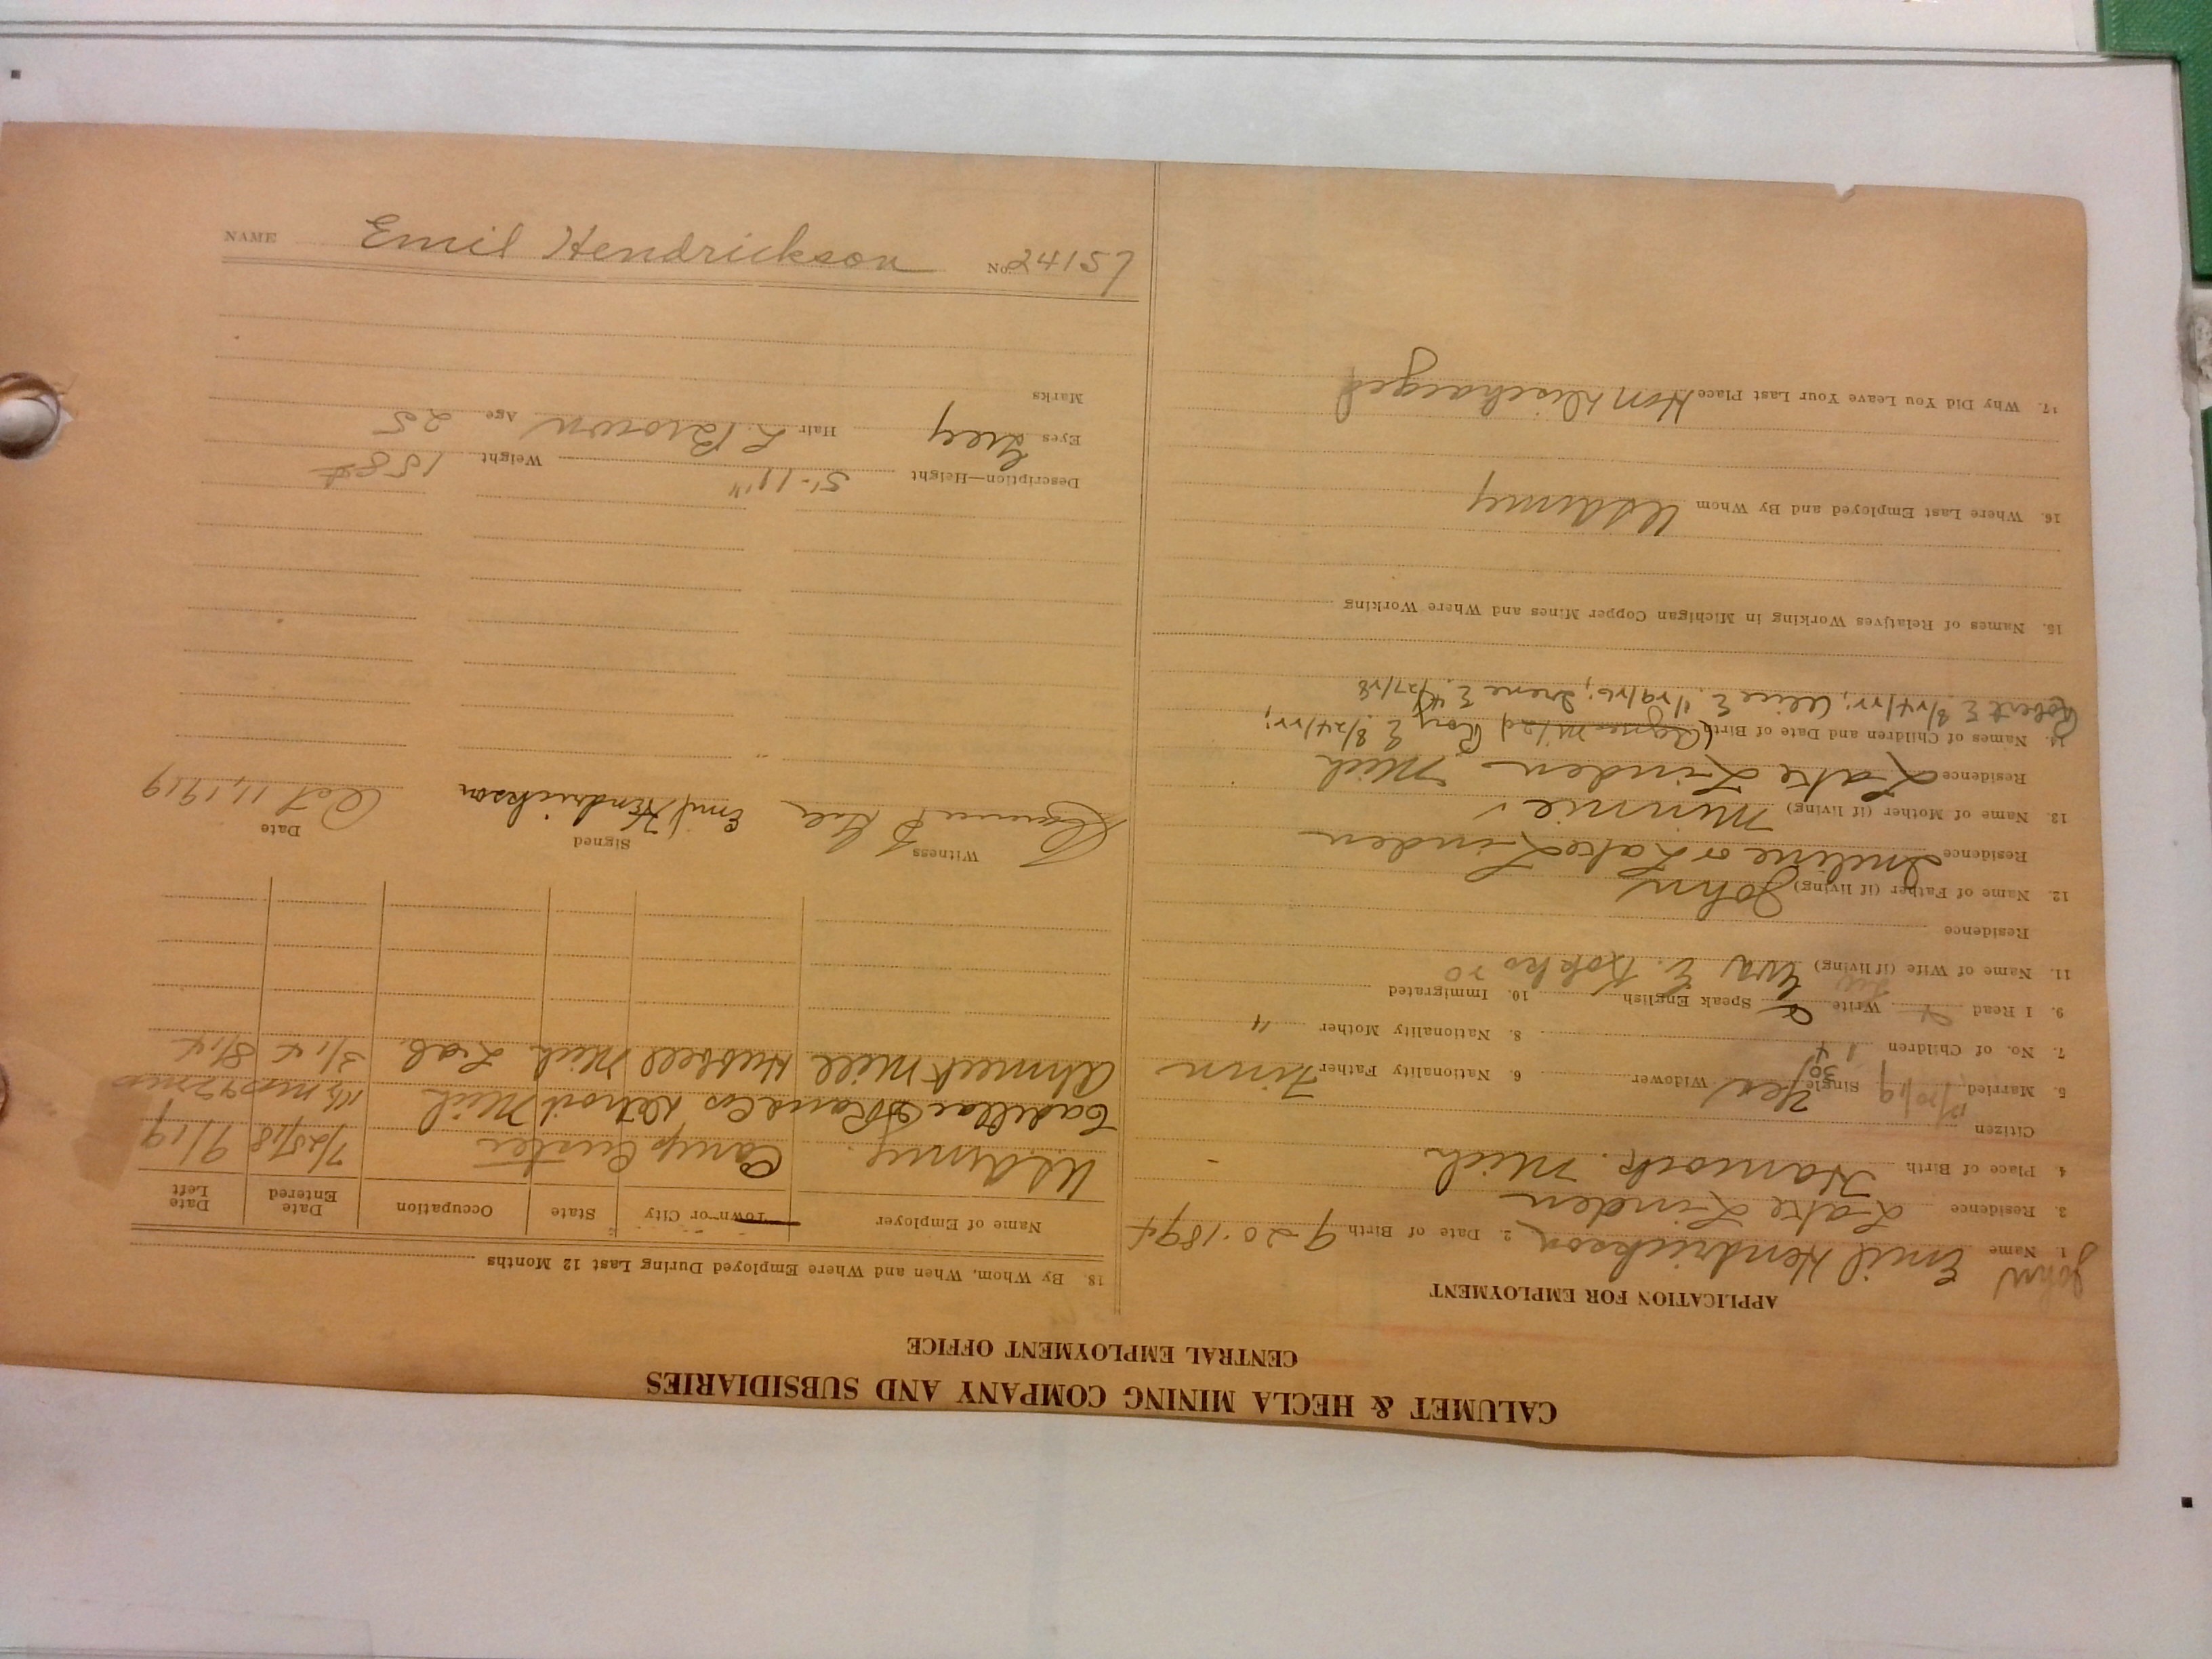 CALUMET & HECLA MINING COMPANY AND SUBSIDIARIES
CENTRAL EMPLOYMENT OFFICE
APPLICATION FOR EMPLOYMENT
1. Name John Emil Hendrickson 2. Date of Birth 9-20-1894
3. Residence Lake Linden
4. Place of Birth Hancock. Mich
Citizen Yes
5. Married 12/20/19 Single Widower 6. Nationality Father Finn
7. No. of Children 8. Nationality Mother "
9. I Read Write Speak English 10. Immigrated
11. Name of Wife (if living) Eva E. Kokko
Residence
12. Name of Father (if living) John
Residence Incline or Lake Linden
13. Name of Mother (if living) Minnie
Residence Lake Linden Mich
14. Names of Children and Date of Birth Roy E 8/24/22;
Robert E 8/24/22; Alice E. 1/29/26; Irene E. 4/27/28
15. Names of Relatives Working in Michigan Copper Mines and Where Working
16. Where Last Employed and By Whom US Army
17. Why Did You Leave Your Last Place Hon Discharged
18. By Whom, When and Where Employed During Last 12 Months
Name of Employer Town or City State Occupation Date Entered Date Left
U.S. Army. Camp Custer 7/25/18 9/19
Cadillac Detroit Mich
Ahmeek Mill Hubbell Mich Lab.
Witness Signed Date
Emil Hendrickson Oct 11, 1919
Description—Height 5'-11" Weight 158#
Eyes Grey Hair L. Brown Age 25
Marks
NAME Emil Hendrickson No. 24157